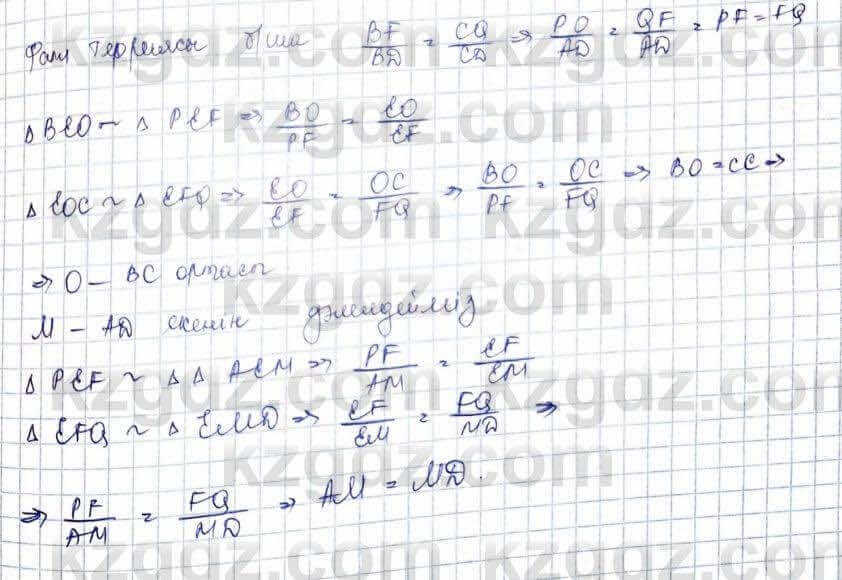 Фалес теоремасы б/ша BF/BD = CQ/CD => PO/AD = QF/AD = PF = FQ
Δ BEO ~ Δ PEF => BO/PF = EO/EF
Δ EOC ~ Δ EFQ => EO/EF = OC/FQ => BO/PF = OC/FQ => BO = CC =>
=> O - BC ортасы
M - AD екенін дәлелдейміз
Δ PEF ~ Δ Δ AEM => PF/AM = EF/EM
Δ EFQ ~ Δ EMD => EF/EM = FQ/MD =>
=> PF/AM = FQ/MD => AM = MD.
kzgdz.com